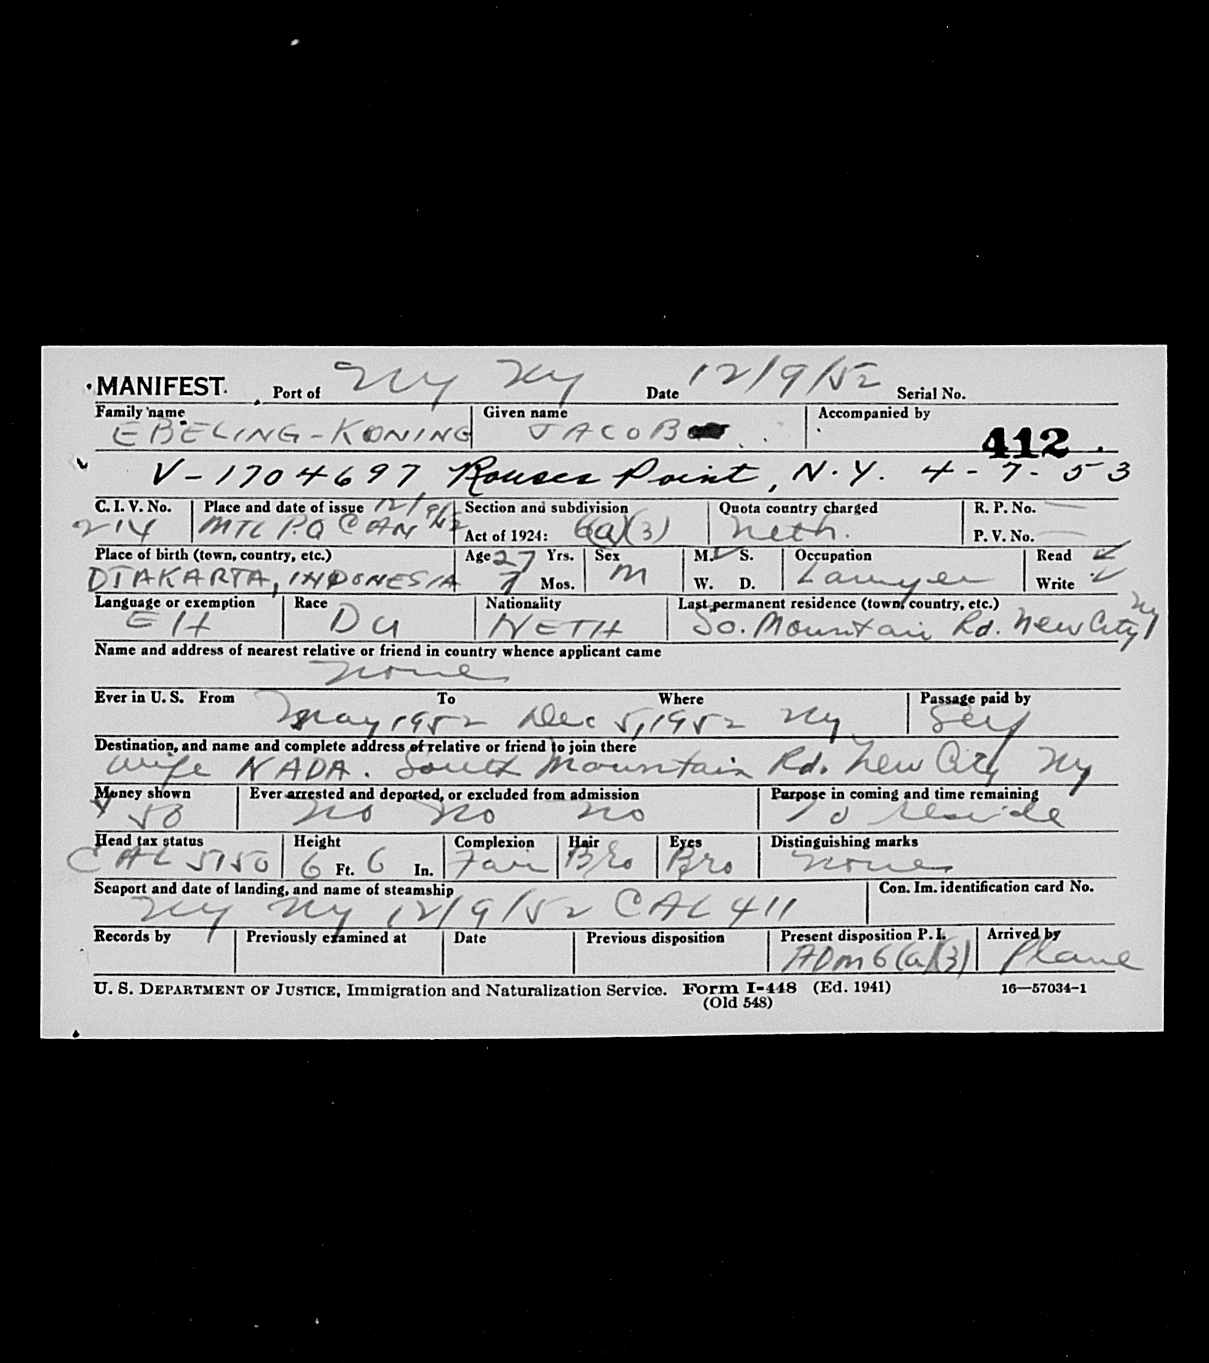 MANIFEST. Port of NY NY Date 12/9/52 Serial No.
Family name Given name Accompanied by
EBELING-KONING JACOB 412
V-1704697 Rouses Point, N.Y. 4-7-53
C. I. V. No. Place and date of issue 12/9/52 Section and subdivision Quota country charged R. P. No.
214 MTL P.Q CAN Act of 1924: 6(a)(3) Neth. P. V. No.
Place of birth (town, country, etc.) Age 27 Yrs. Sex M. S. Occupation Read
DJAKARTA, INDONESIA 7 Mos. M W. D. Lawyer Write
Language or exemption Race Nationality Last permanent residence (town, country, etc.)
EH DU NETH So. Mountain Rd. New City NY
Name and address of nearest relative or friend in country whence applicant came
none
Ever in U. S. From To Where Passage paid by
May 1952 Dec 5, 1952 NY Self
Destination, and name and complete address of relative or friend to join there
Wife NADA. South Mountain Rd. New City NY
Money shown Ever arrested and deported, or excluded from admission Purpose in coming and time remaining
50 No No No To reside
Head tax status Height Complexion Hair Eyes Distinguishing marks
CAL 5150 6 Ft. 6 In. Fair Bro Bro none
Seaport and date of landing, and name of steamship Con. Im. identification card No.
NY NY 12/9/52 CAL 411
Records by Previously examined at Date Previous disposition Present disposition P. I. Arrived by
ADM 6(a)(3) Plane
U. S. DEPARTMENT OF JUSTICE, Immigration and Naturalization Service. Form I-448 (Ed. 1941) 16—57034-1
(Old 548)